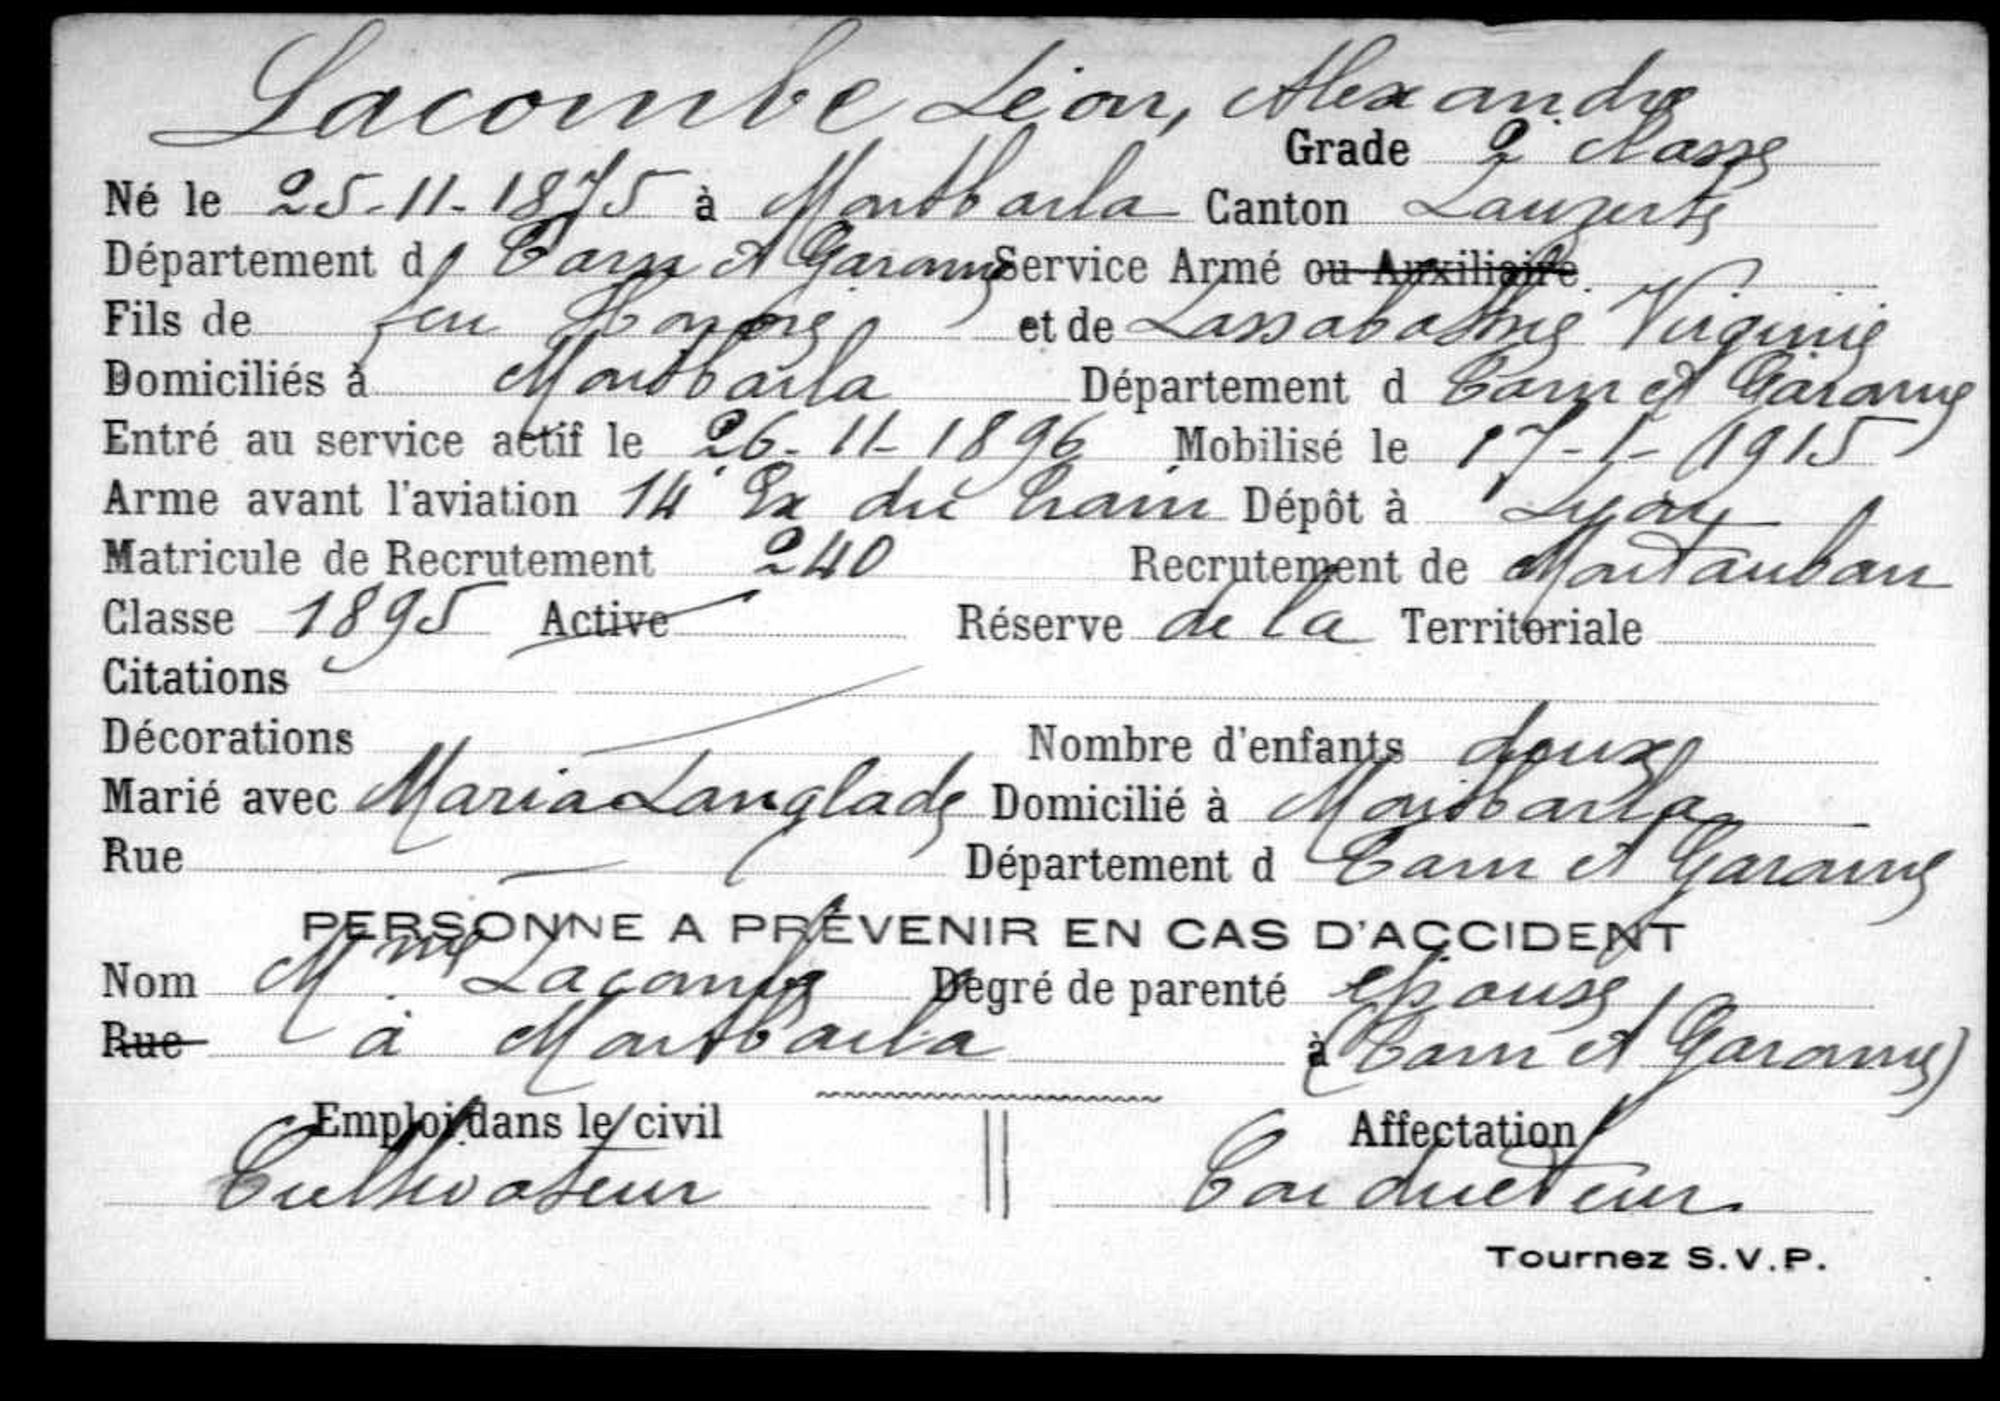 Lacombe Léon, Alexandre
Grade 2 classe
Né le 25-11-1875 à Montbarla Canton Lauzerte
Département d Tarn et Garonne Service Armé ou Auxiliaire
Fils de feu et de Lassabathie Virginie
Domiciliés à Montbarla Département d Tarn et Garonne
Entré au service actif le 26-11-1896 Mobilisé le 17-1-1915
Arme avant l'aviation 14 Ex du train Dépôt à Lyon
Matricule de Recrutement 240 Recrutement de Montauban
Classe 1895 Active Réserve de la Territoriale
Citations
Décorations Nombre d'enfants deux
Marié avec Maria Langlade Domicilié à Montbarla
Rue Département d Tarn et Garonne
PERSONNE A PRÉVENIR EN CAS D'ACCIDENT
Nom Mme Lacombe Degré de parenté épouse
Rue à Montbarla à (Tarn et Garonne)
Emploi dans le civil Affectation
Cultivateur Conducteur
Tournez S.V.P.